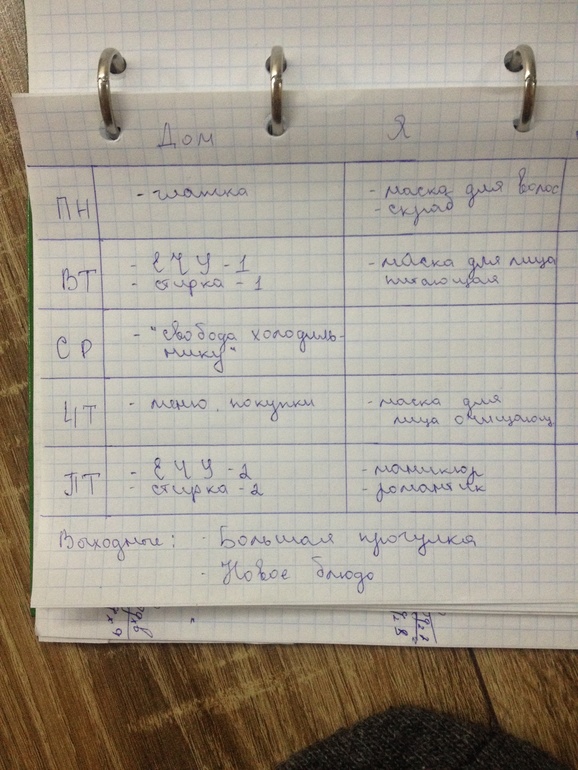 Дом Я
ПН - глажка - маска для волос
- скраб
ВТ - ЕЧУ - 1 - маска для лица
- стирка - 1 питающая
СР - "свобода холодиль-
нику"
ЧТ - меню, покупки - маска для
лица очищающ
ПТ - ЕЧУ - 2 - маникюр
- стирка - 2 - романтик
Выходные: - Большая прогулка
- Новое блюдо